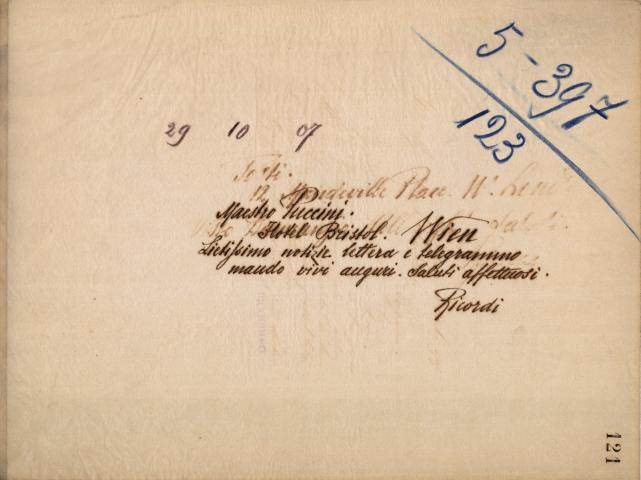 5-397
123
29 10 07
Tosti.
12, Mandeville Place. W.
Maestro Puccini.
Hotel Bristol. Wien
Lietissimo notizie lettera e telegramma
mando vivi auguri. Saluti affettuosi.
Ricordi
121